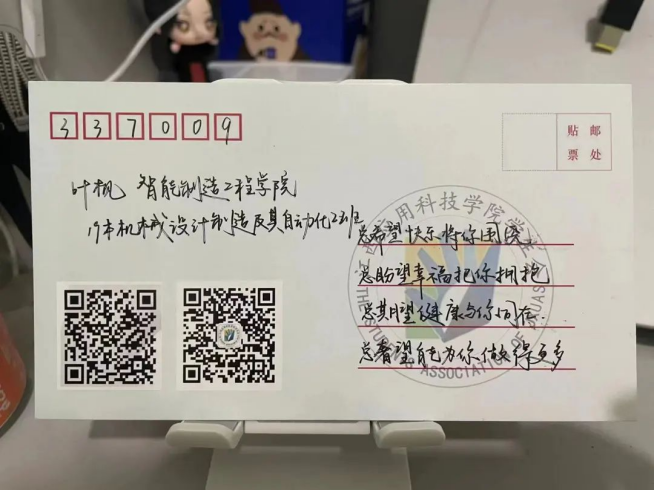 337009
贴邮
票处
叶帆 智能制造工程学院
19本机械设计制造及其自动化2班
总希望快乐将你围绕
总盼望幸福把你拥抱
总期望健康与你同行
总奢望能为你做得更多
用科技学院学生
THE STU
ASSOCIATION OF